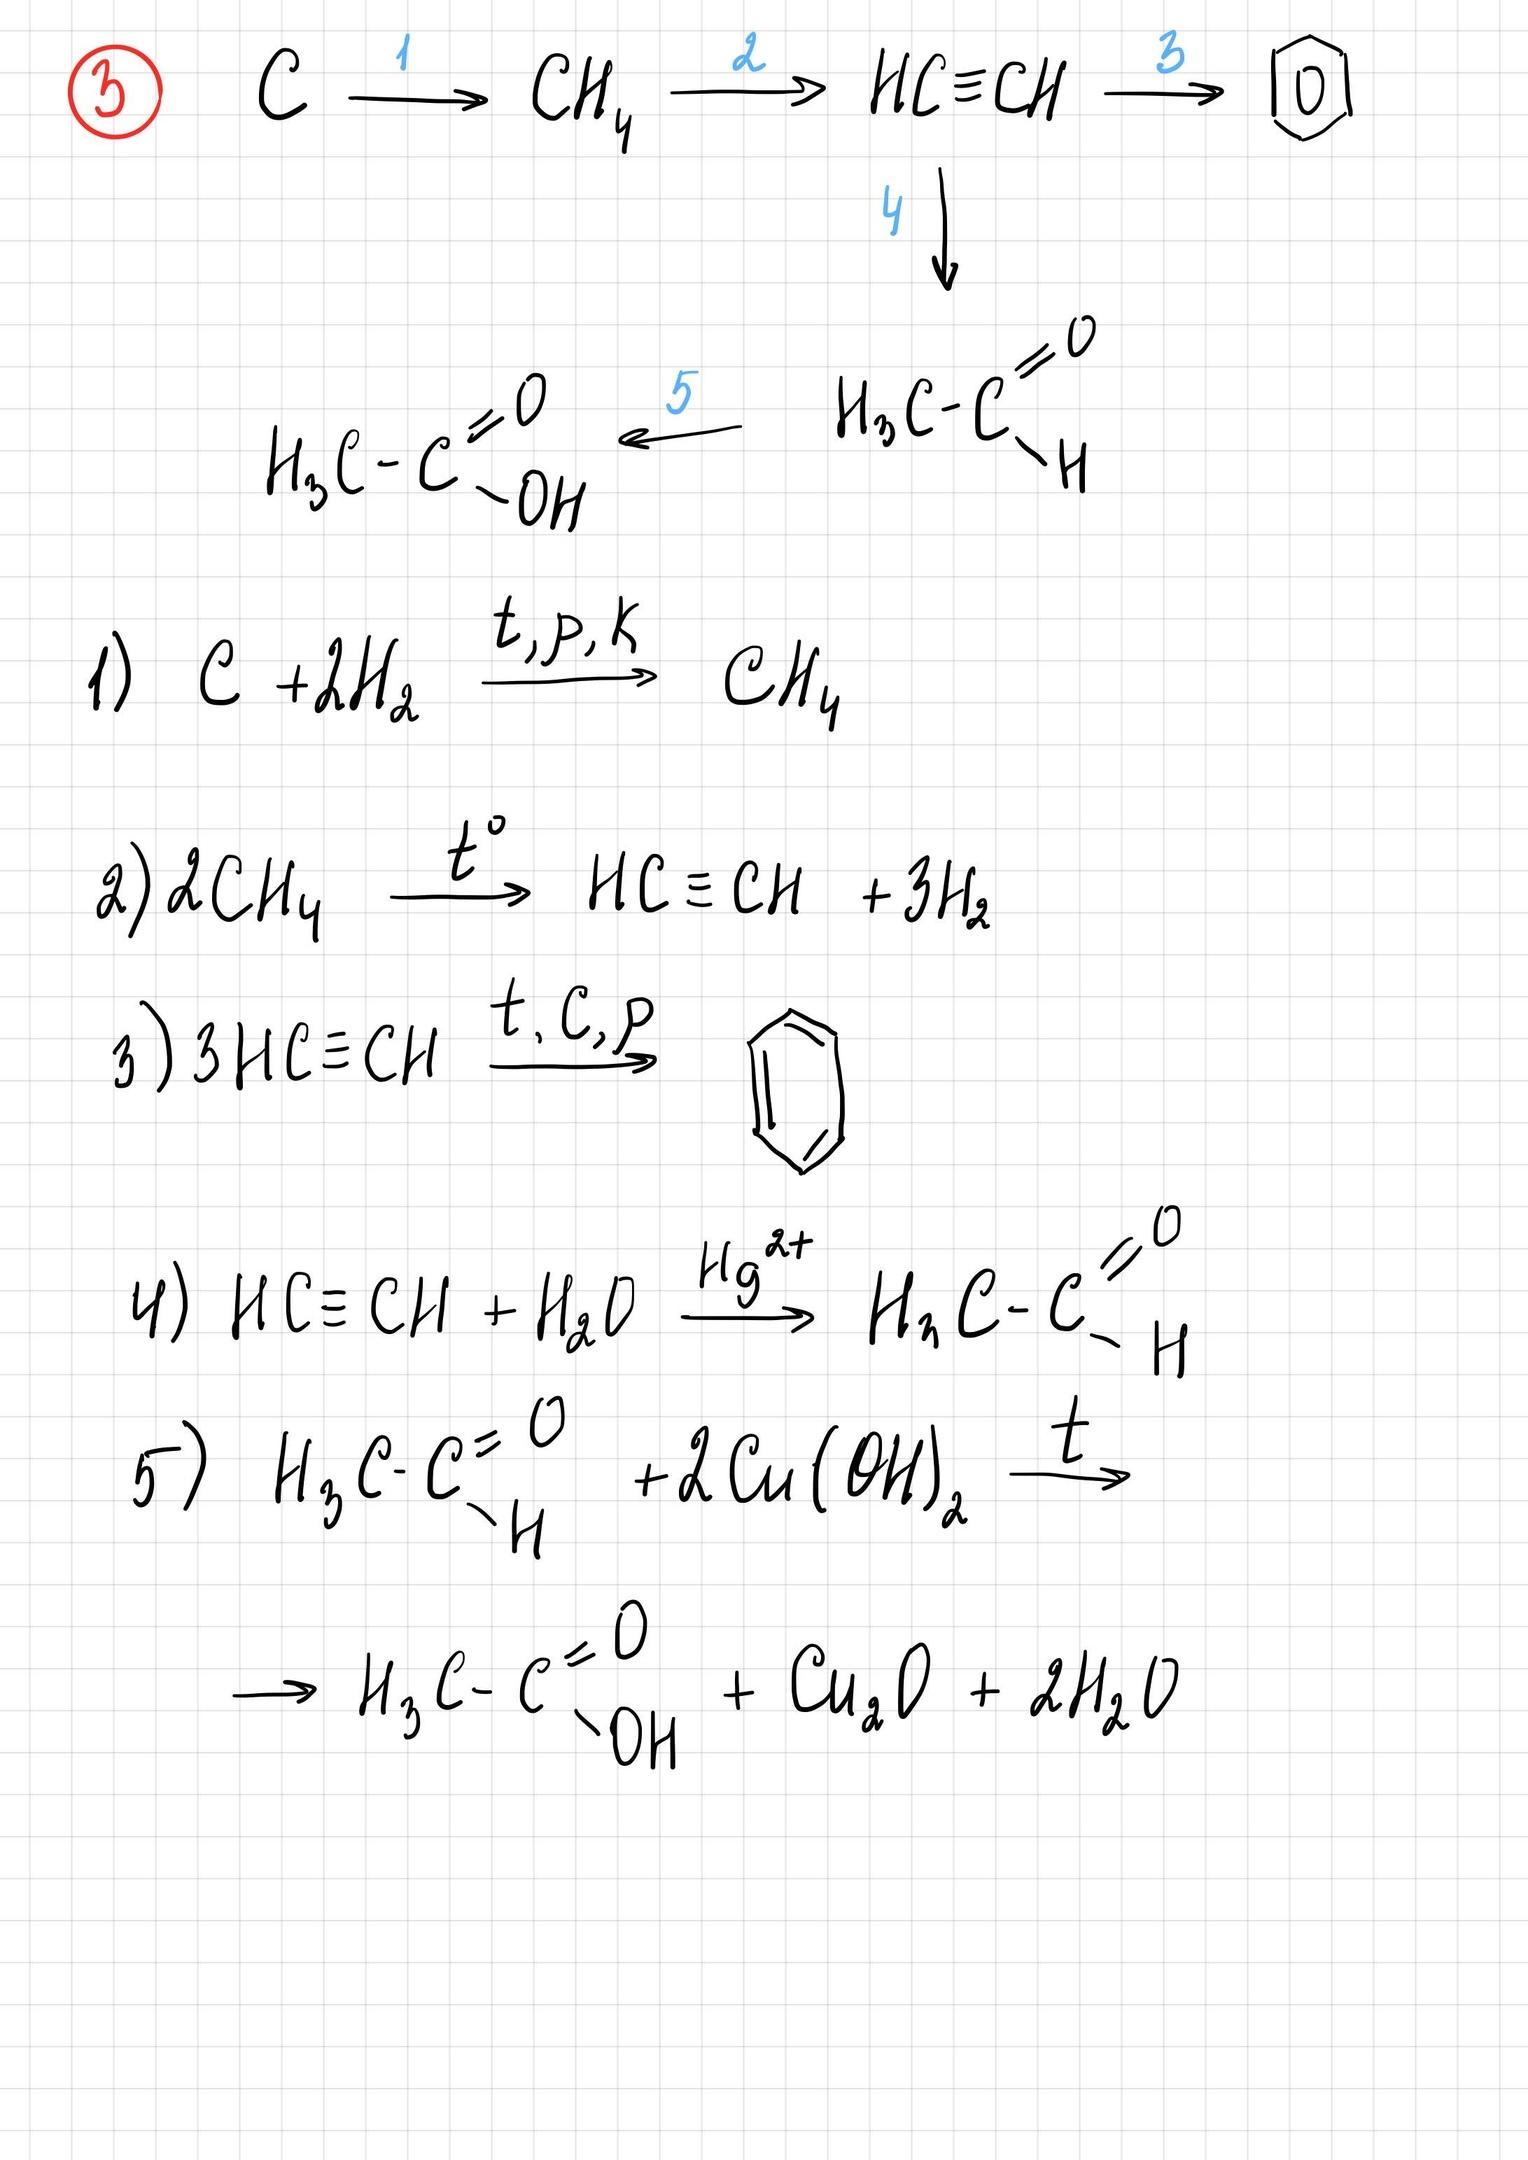 3 C 1→ CH₄ 2→ HC≡CH 3→
4 ↓
H₃C-C=O -OH ←5 H₃C-C=O -H
1) C +2H₂ t, p, K → CH₄
2) 2CH₄ t° → HC≡CH +3H₂
3) 3HC≡CH t, C, p →
4) HC≡CH + H₂O Hg²⁺ → H₃C-C=O -H
5) H₃C-C=O -H +2Cu(OH)₂ t →
→ H₃C-C=O -OH + Cu₂O + 2H₂O